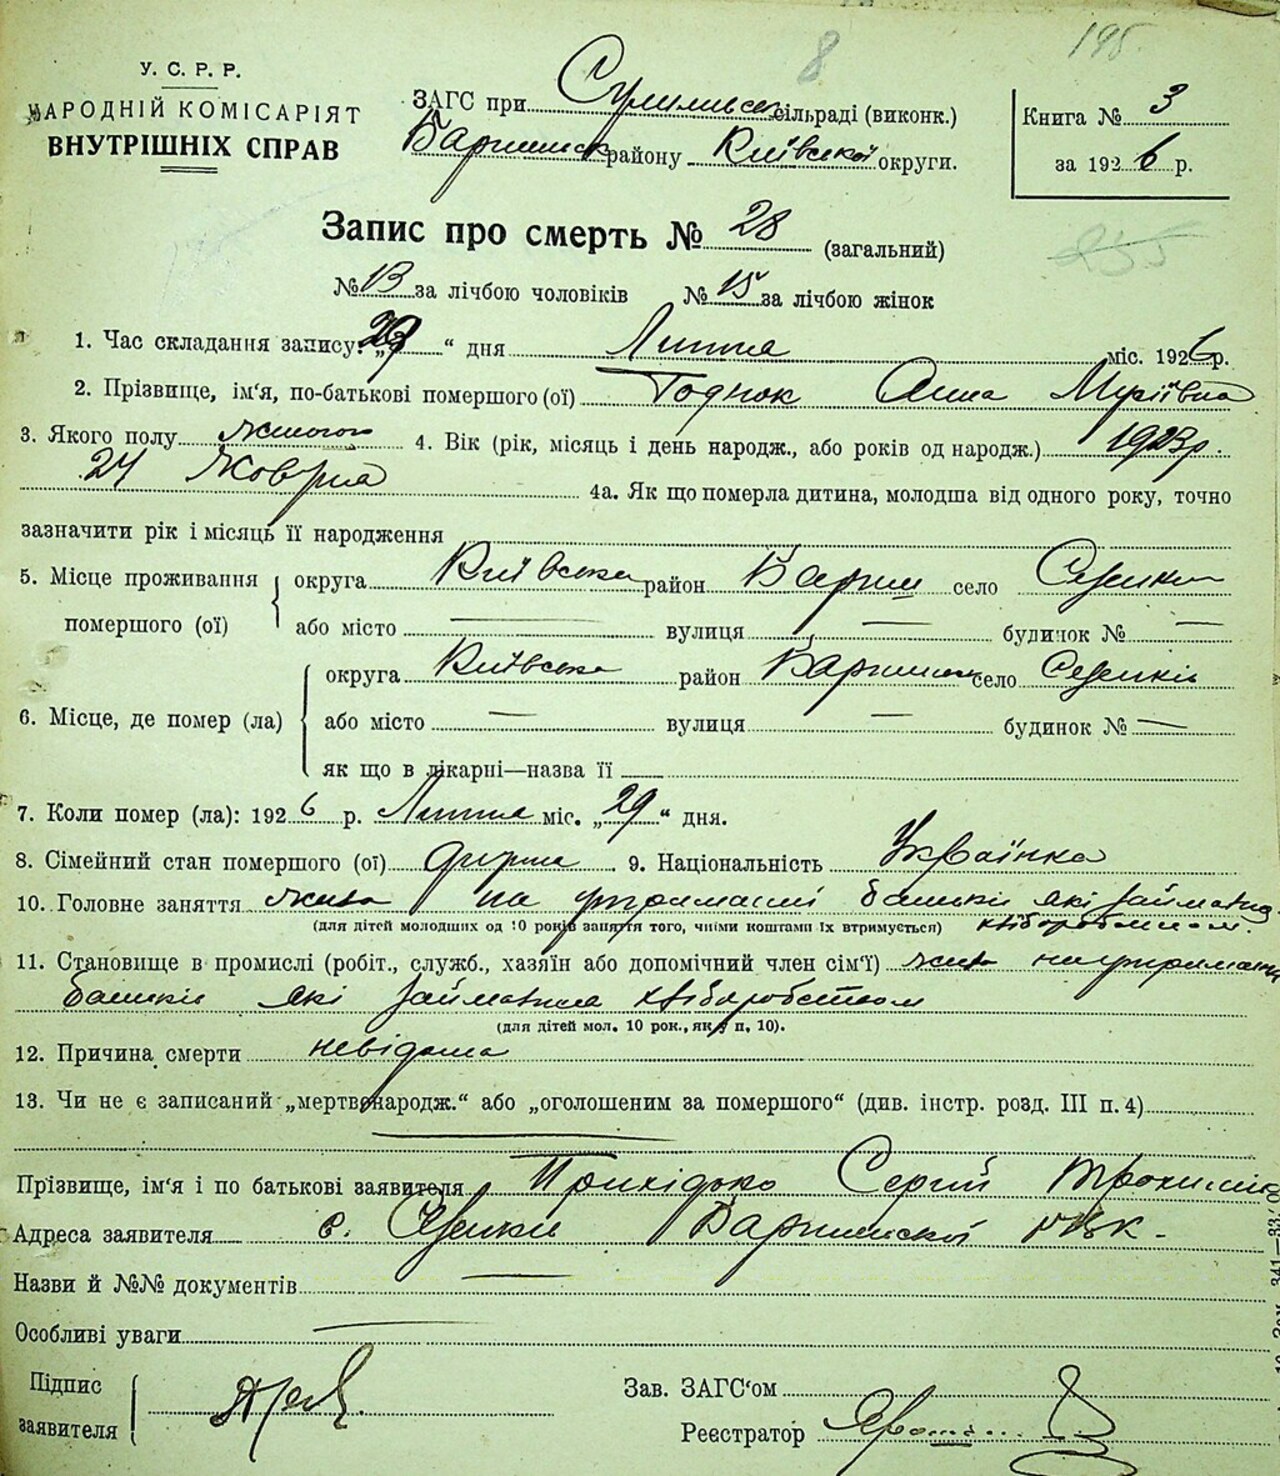 8
195.
У. С. Р. Р.
НАРОДНІЙ КОМІСАРІЯТ
ВНУТРІШНІХ СПРАВ
ЗАГС при Сулимівськ сільраді (виконк.)
Баришівськ району Київської округи.
Книга № 3
за 1926 р.
Запис про смерть № 28 (загальний)
255
№ 13 за лічбою чоловіків № 15 за лічбою жінок
1. Час складання запису: „29“ дня Липня міс. 1926 р.
2. Прізвище, ім'я, по-батькові помершого (ої) Анна
3. Якого полу жіночого 4. Вік (рік, місяць і день народж., або років од народж.) 1923 р.
24 Жовтня 4а. Як що померла дитина, молодша від одного року, точно
зазначити рік і місяць її народження
5. Місце проживання помершого (ої) округа Київська район Бариш село Селенки
або місто — вулиця — будинок № —
6. Місце, де помер (ла) округа Київська район Баришівськ село
або місто — вулиця — будинок № —
як що в лікарні—назва її —
7. Коли помер (ла): 1926 р. Липня міс. „29“ дня.
8. Сімейний стан помершого (ої) 9. Національність Українка
10. Головне заняття жива на утриманні батьків які займались
(для дітей молодших од 10 років заняття того, чиїми коштами їх втримується) хліборобством.
11. Становище в промислі (робіт., служб., хазяїн або допомічний член сім'ї) жива на утриманні
батьків які займались хліборобством
(для дітей мол. 10 рок., як у п. 10).
12. Причина смерти невідома
13. Чи не є записаний „мертвонародж.“ або „оголошеним за помершого“ (див. інстр. розд. III п. 4)
Прізвище, ім'я і по батькові заявителя Прихідько Сергій Трохимів
Адреса заявителя с. Баришівської
Назви й №№ документів —
Особливі уваги —
Підпис заявителя
Зав. ЗАГС'ом
Реєстратор